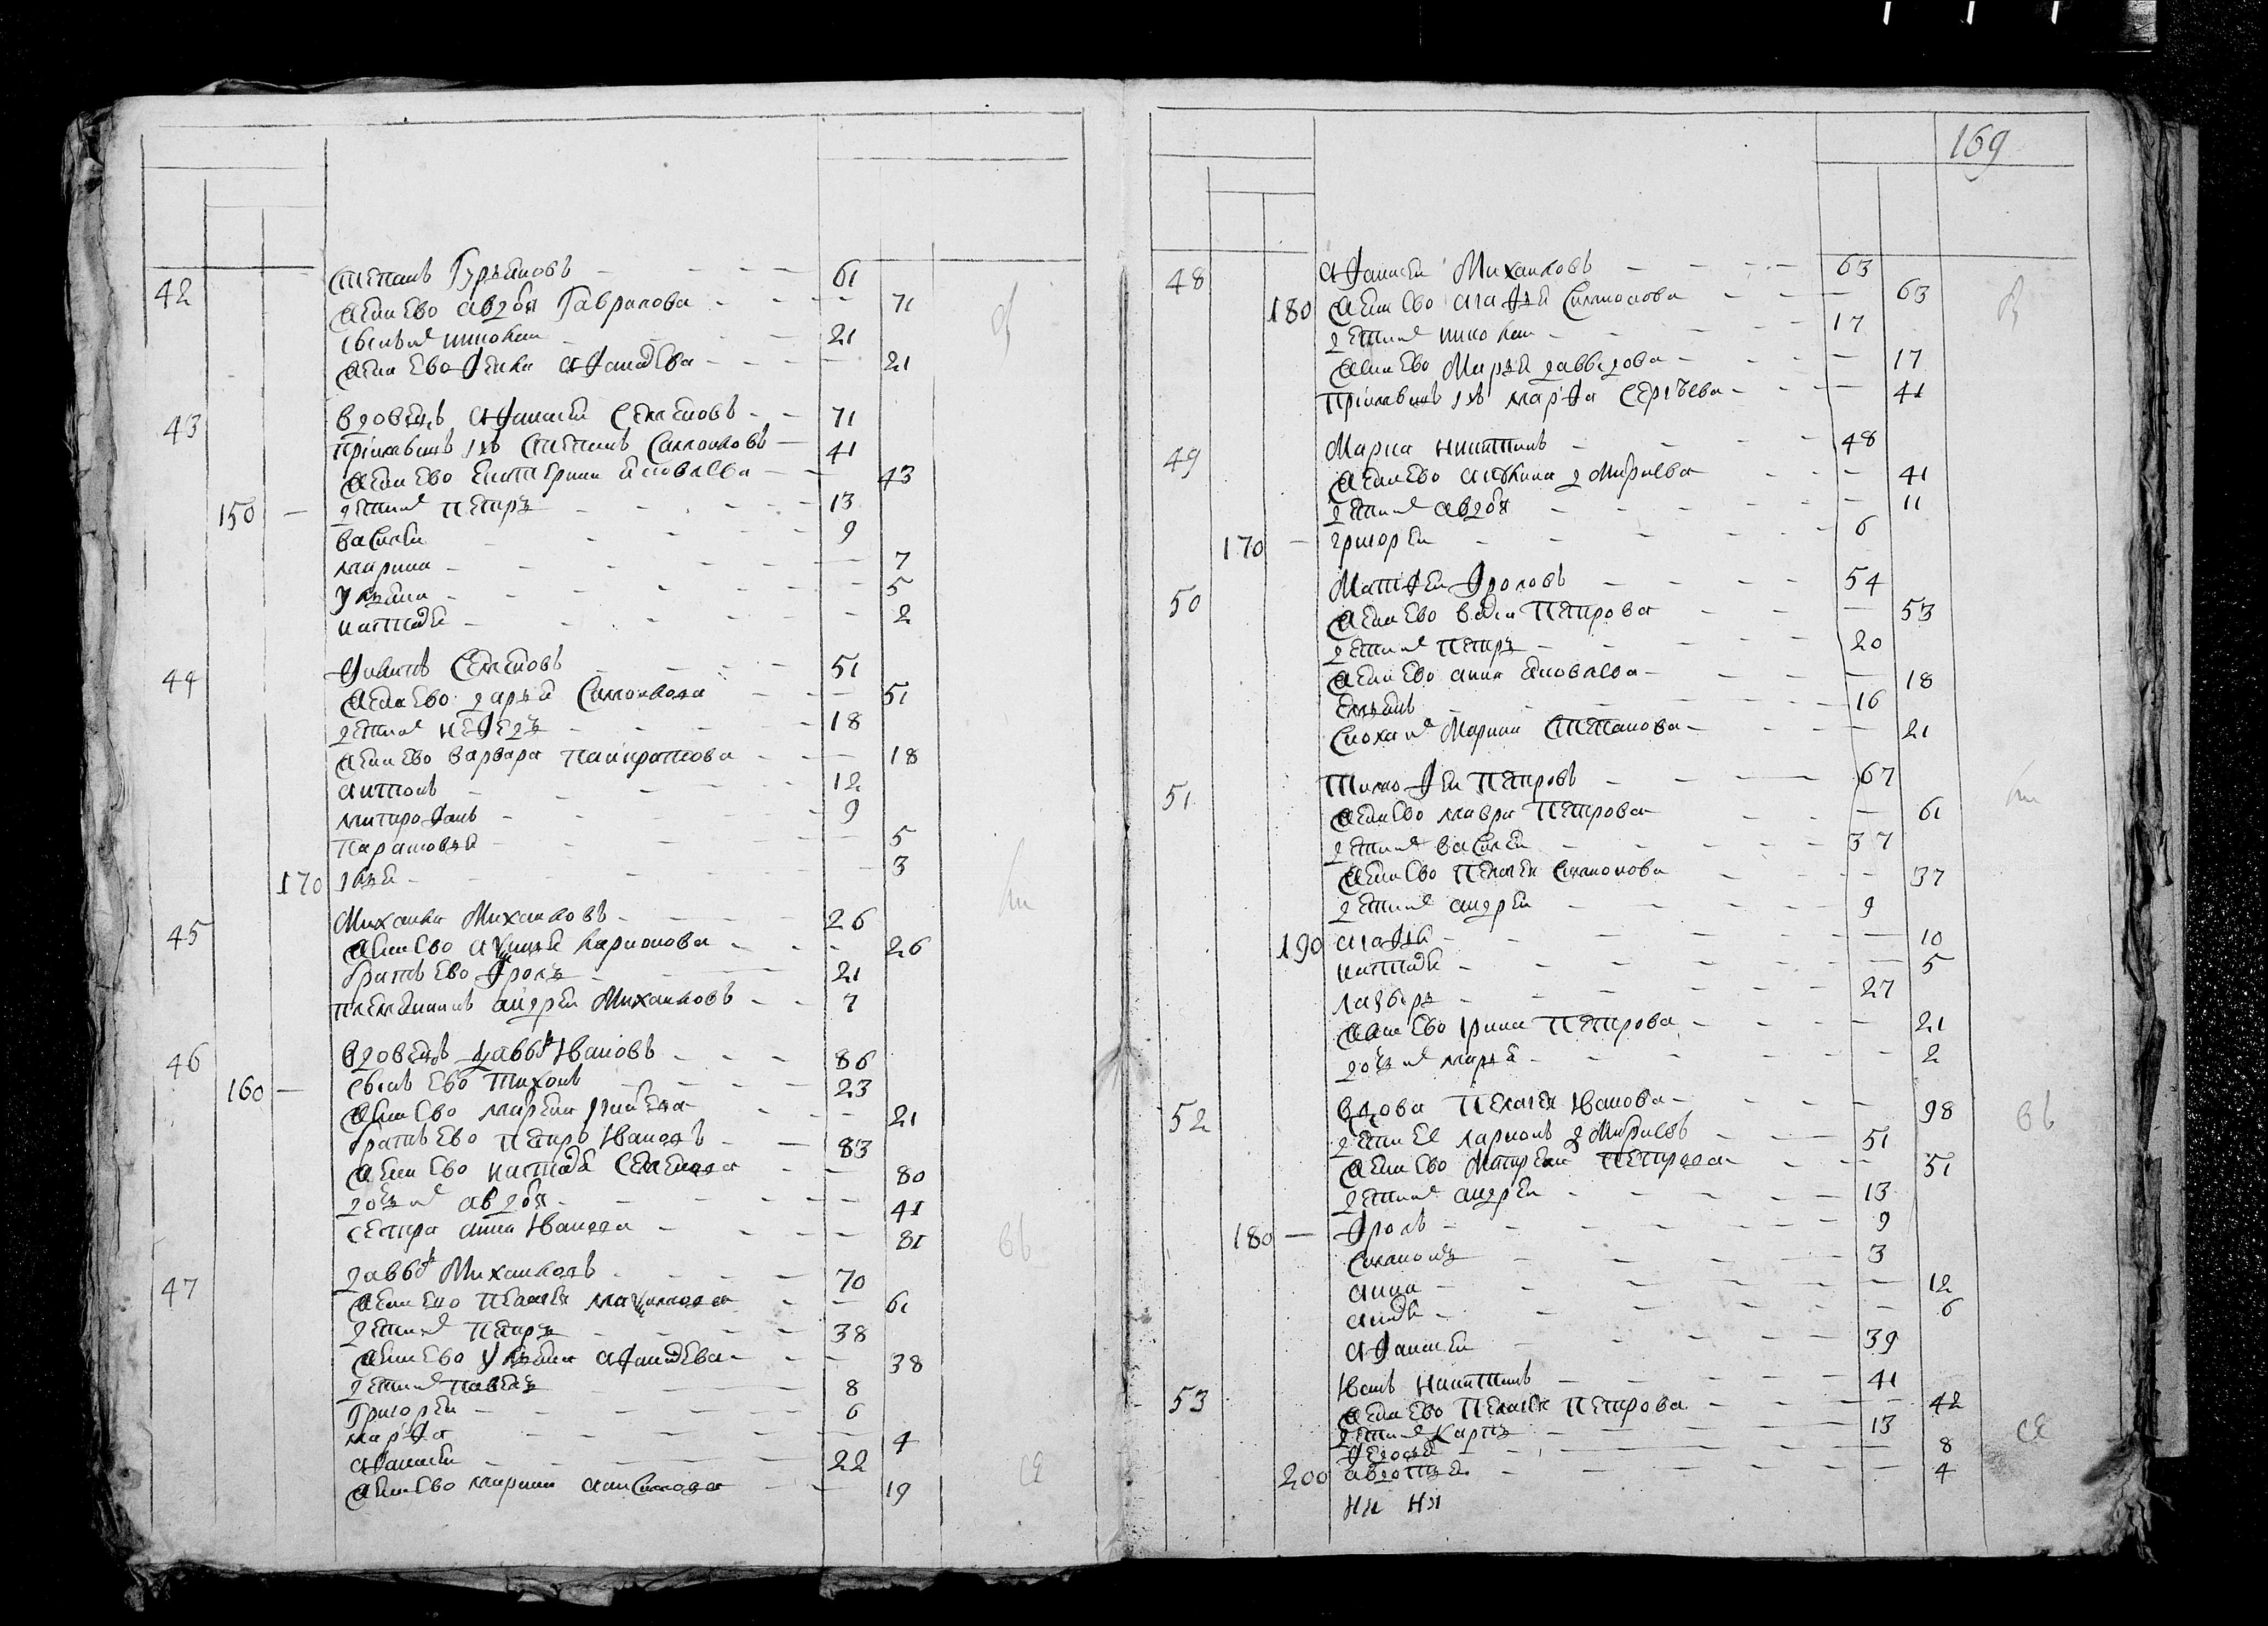 169
42 Степанъ Гурьяновъ 61
жена ево авдотя Гаврилова 71
сынъ их николаи 21
жена ево фекла афанасева 21
43 вдовецъ афанасеи Семеновъ 71
Степанъ Самоиловъ 41
жена ево екатерина яковлева 43
150 дети их петръ 13
васился 9
марина 7
ульяна 5
наталья 2
44 филипъ Семеновъ 51
жена ево дарья Самоилова 51
дети их нефедъ 18
жена ево варвара панкратова 18
антонъ 12
митрофанъ 9
парасковья 5
170 3
45 Михаила Михаиловъ 26
жена ево акулина ларионова 26
братъ ево фролъ 21
племянникъ андреи Михаиловъ 7
46 вдовецъ давыдъ Ивановъ 86
160 сынъ ево тихонъ 23
жена ево 21
братъ ево петръ Ивановъ 83
жена ево наталья Семенова 80
дочь их авдотя 41
сестра анна Иванова 81
47 давыдъ Михаиловъ 70
жена ево пелагея максимова 61
дети их петръ 38
жена ево ульяна афанасева 38
дети их павелъ 8
григореи 6
марфа 4
афанасеи 22
жена ево марина анисимова 19
48 афанасеи Михаиловъ 63
180 жена ево агафья Симонова 63
дети их николаи 17
жена ево Марья давыдова 17
марфа Сергѣева 41
49 Марка никитинъ 48
жена ево дмитриева 41
дети их авдотя 11
170 григореи 6
50 Матфеи фроловъ 54
жена ево петрова 53
дети их петръ 20
жена ево анна яковлева 18
емельянъ 16
сноха их Марина Степанова 21
51 тимофеи петровъ 67
жена ево мавра петрова 61
дети их васился 37
жена ево пелагея Симонова 37
дети их андреи 9
190 агафья 10
наталья 5
лазарь 27
жена ево ирина петрова 21
дочь их марья 2
52 вдова пелагея Иванова 98
дети ее ларионъ дмитриевъ 51
жена ево Матрена петрова 51
дети их андреи 13
180 фролъ 9
Симонъ 3
анна 12
6
афанасеи 39
53 Иванъ никитинъ 41
жена ево пелагея петрова 42
дети их карпъ 13
федосья 8
200 авдотья 4